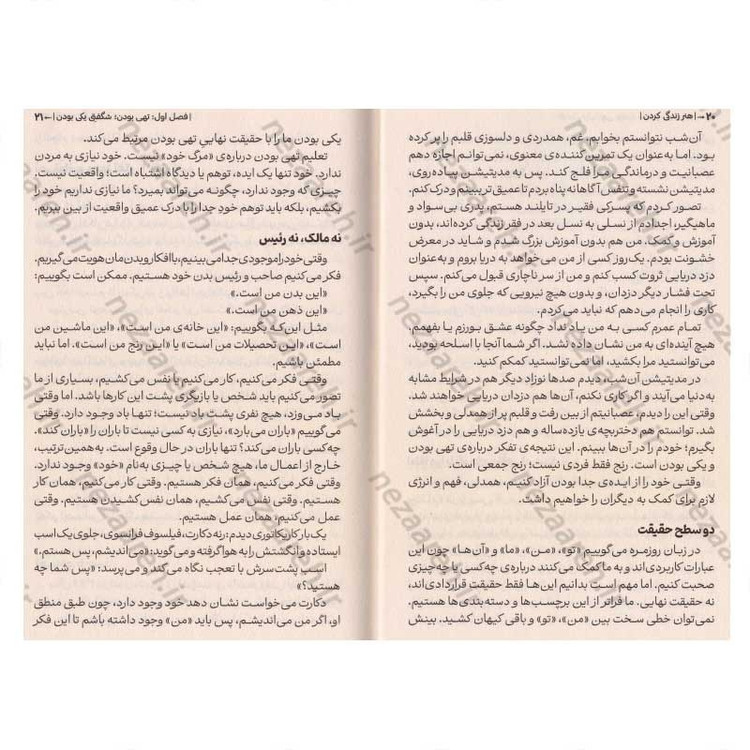 ۲۰ → | هنر زندگی کردن |
آن‌شب نتوانستم بخوابم، غم، همدردی و دلسوزی قلبم را پر کرده
بود. اما به‌عنوان یک تمرین‌کننده‌ی معنوی، نمی‌توانم اجازه دهم
عصبانیت و درماندگی مرا فلج کند. پس به مدیتیشن پیاده‌روی،
مدیتیشن نشسته و تنفس آگاهانه پناه بردم تا عمیق‌تر ببینم و درک کنم.
تصور کردم که پسرکی فقیر در تایلند هستم، پدری بی‌سواد و
ماهیگیر. اجدادم از نسلی به نسل بعد در فقر زندگی کرده‌اند، بدون
آموزش و کمک. من هم بدون آموزش بزرگ شدم و شاید در معرض
خشونت بودم. یک روز کسی از من می‌خواهد به دریا بروم و به‌عنوان
دزد دریایی ثروت کسب کنم و من از سر ناچاری قبول می‌کنم. سپس
تحت فشار دیگر دزدان، و بدون هیچ نیرویی که جلوی من را بگیرد،
کاری را انجام می‌دهم که نباید می‌کردم.
تمام عمرم کسی به من یاد نداد چگونه عشق بورزم یا بفهمم،
هیچ آینده‌ای به من نشان داده نشد. اگر شما آنجا با اسلحه بودید،
می‌توانستید مرا بکشید، اما نمی‌توانستید کمکم کنید.
در مدیتیشن آن‌شب، دیدم صدها نوزاد دیگر هم در شرایط مشابه
به دنیا می‌آیند و اگر کاری نکنم، آن‌ها هم دزدان دریایی خواهند شد.
وقتی این را دیدم، عصبانیتم از بین رفت و قلبم پر از همدلی و بخشش
شد. توانستم هم دختربچه‌ی یازده‌ساله و هم دزد دریایی را در آغوش
بگیرم؛ خودم را در آن‌ها ببینم. این نتیجه‌ی تفکر درباره‌ی تهی بودن
و یکی بودن است. رنج فقط فردی نیست؛ رنج جمعی است.
وقتی خود را از ایده‌ی جدا بودن آزاد کنیم، همدلی، فهم و انرژی
لازم برای کمک به دیگران را خواهیم داشت.
دو سطح حقیقت
در زبان روزمره می‌گوییم «تو»، «من»، «ما» و «آن‌ها» چون این
عبارات کاربردی‌اند و به ما کمک می‌کنند درباره‌ی چه‌کسی یا چه‌چیزی
صحبت کنیم. اما مهم است بدانیم این‌ها فقط حقیقت قراردادی‌اند،
نه حقیقت نهایی. ما فراتر از این برچسب‌ها و دسته‌بندی‌ها هستیم.
نمی‌توان خطی سخت بین «من»، «تو» و باقی کیهان کشید. بینش
| فصل اول: تهی بودن؛ شگفتی یکی بودن | ← ۲۱
یکی بودن ما را با حقیقت نهایی تهی بودن مرتبط می‌کند.
تعلیم تهی بودن درباره‌ی «مرگ خود» نیست. خود نیازی به مردن
ندارد. خود تنها یک ایده، توهم یا دیدگاه اشتباه است؛ واقعیت نیست.
چیزی که وجود ندارد، چگونه می‌تواند بمیرد؟ ما نیازی نداریم خود را
بکشیم، بلکه باید توهم خودِ جدا را با درک عمیق واقعیت از بین ببریم.
نه مالک، نه رئیس
وقتی خود را موجودی جدا می‌بینیم، با افکار و بدن‌مان هویت می‌گیریم.
فکر می‌کنیم صاحب و رئیس بدن خود هستیم. ممکن است بگوییم:
«این بدن من است.»
«این ذهن من است.»
مثل این‌که بگوییم: «این خانه‌ی من است»، «این ماشین من
است»، «این تحصیلات من است» یا «این رنج من است». اما نباید
مطمئن باشیم.
وقتی فکر می‌کنیم، کار می‌کنیم یا نفس می‌کشیم، بسیاری از ما
تصور می‌کنیم باید شخص یا بازیگری پشت این کارها باشد. اما وقتی
باد می‌وزد، هیچ نفری پشت باد نیست؛ تنها باد وجود دارد. وقتی
می‌گوییم «باران می‌بارد»، نیازی به کسی نیست تا باران را «باران کند».
چه‌کسی باران می‌کند؟ تنها باران در حال وقوع است. به همین ترتیب،
خارج از اعمال ما، هیچ شخص یا چیزی به‌نام «خود» وجود ندارد.
وقتی فکر می‌کنیم، همان فکر هستیم. وقتی کار می‌کنیم، همان کار
هستیم. وقتی نفس می‌کشیم، همان نفس کشیدن هستیم. وقتی
عمل می‌کنیم، همان عمل هستیم.
یک بار کاریکاتوری دیدم: رنه دکارت، فیلسوف فرانسوی، جلوی یک اسب
ایستاده و انگشتش را به هوا گرفته و می‌گوید: «می‌اندیشم، پس هستم.»
اسب پشت‌سرش با تعجب نگاه می‌کند و می‌پرسد: «پس شما چه
هستید؟»
دکارت می‌خواست نشان دهد خود وجود دارد، چون طبق منطق
او، اگر من می‌اندیشم، پس باید «من» وجود داشته باشم تا این فکر
nezaareh.ir